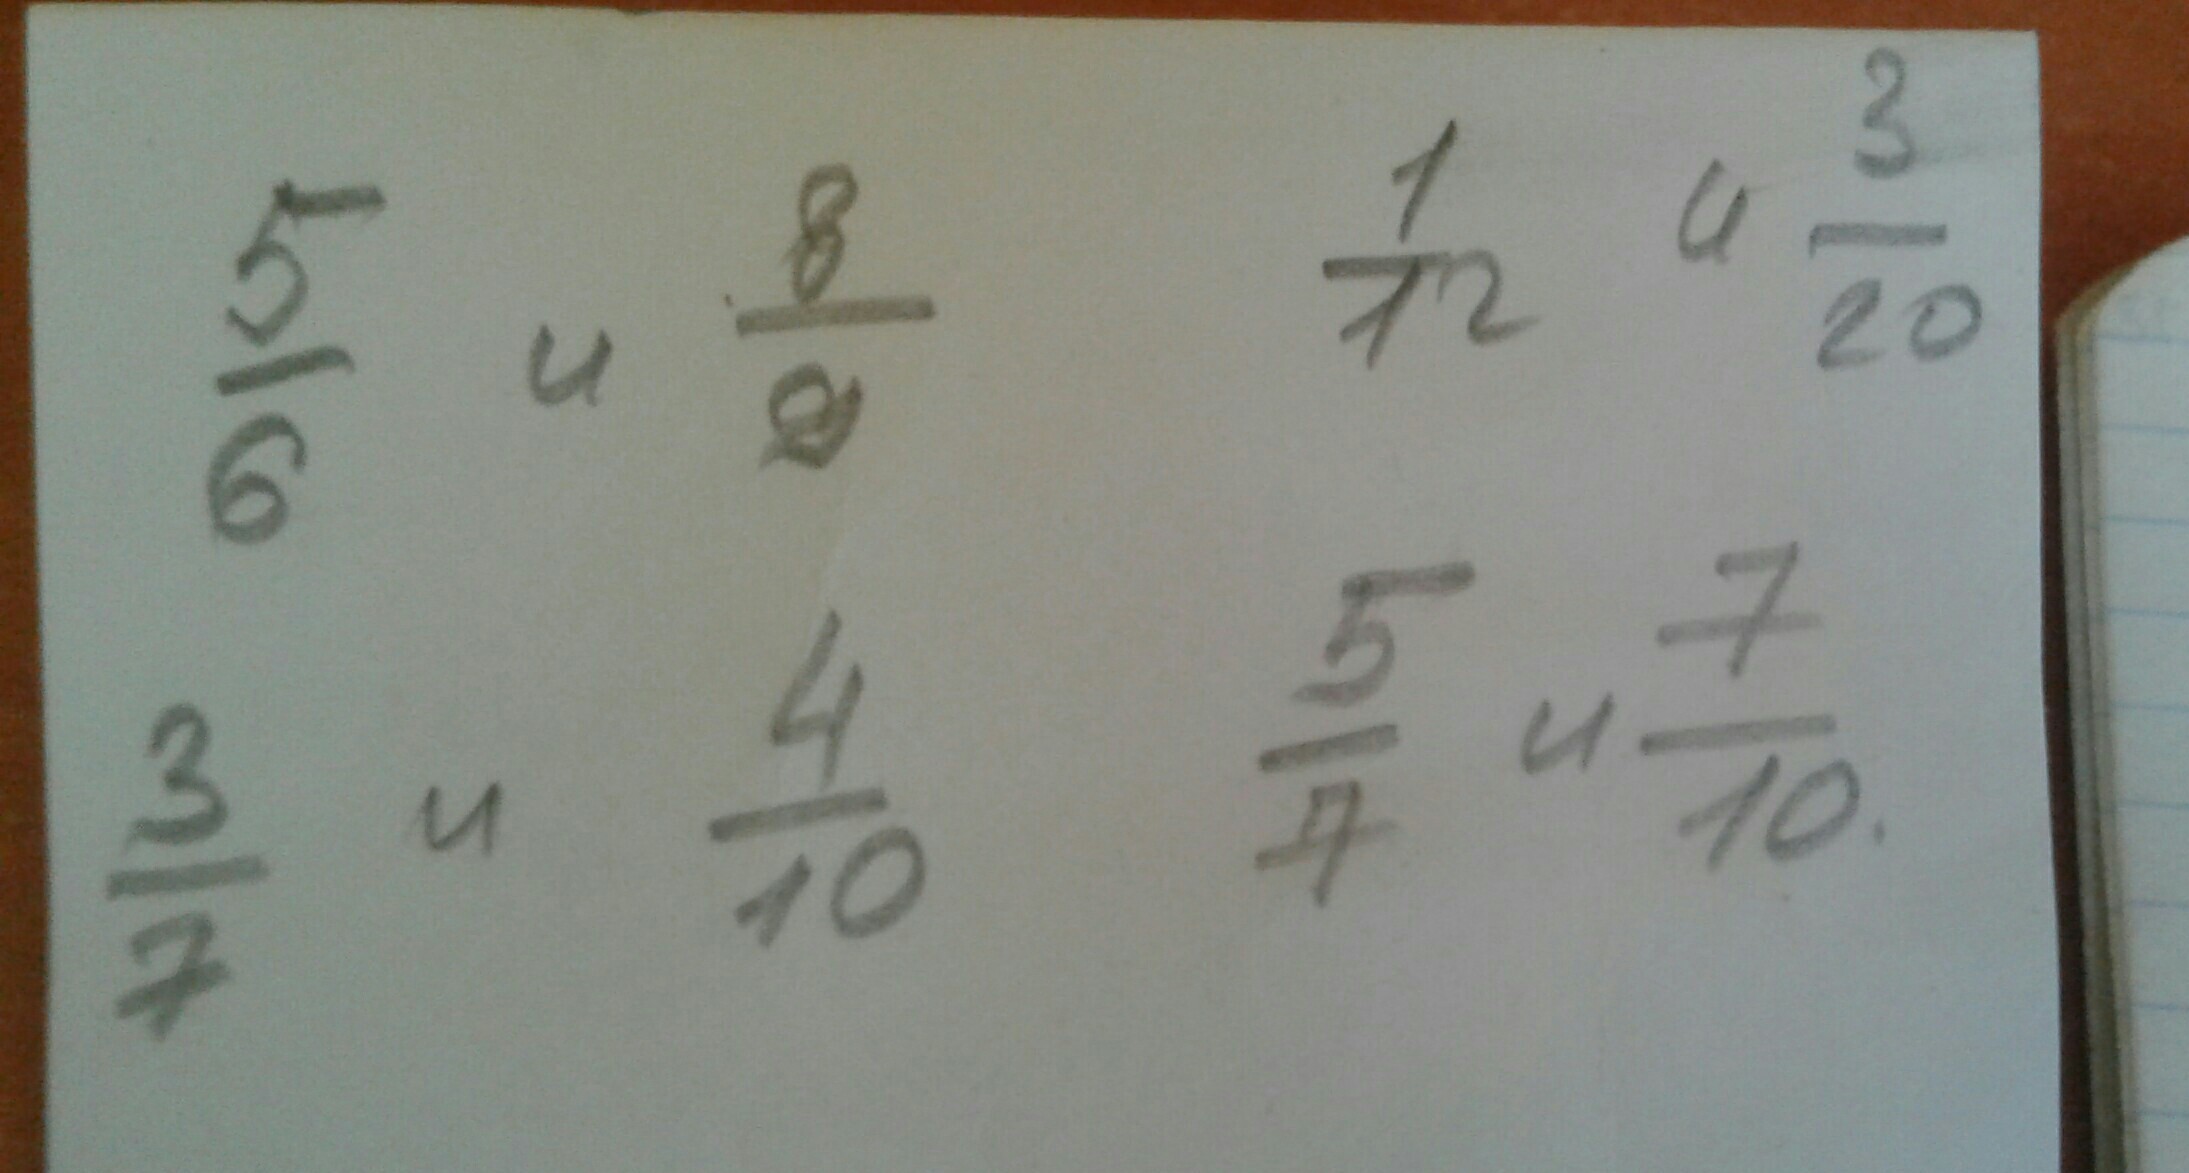 5/6 и 8/9 1/12 и 3/20
3/7 и 4/10 5/7 и 7/10.